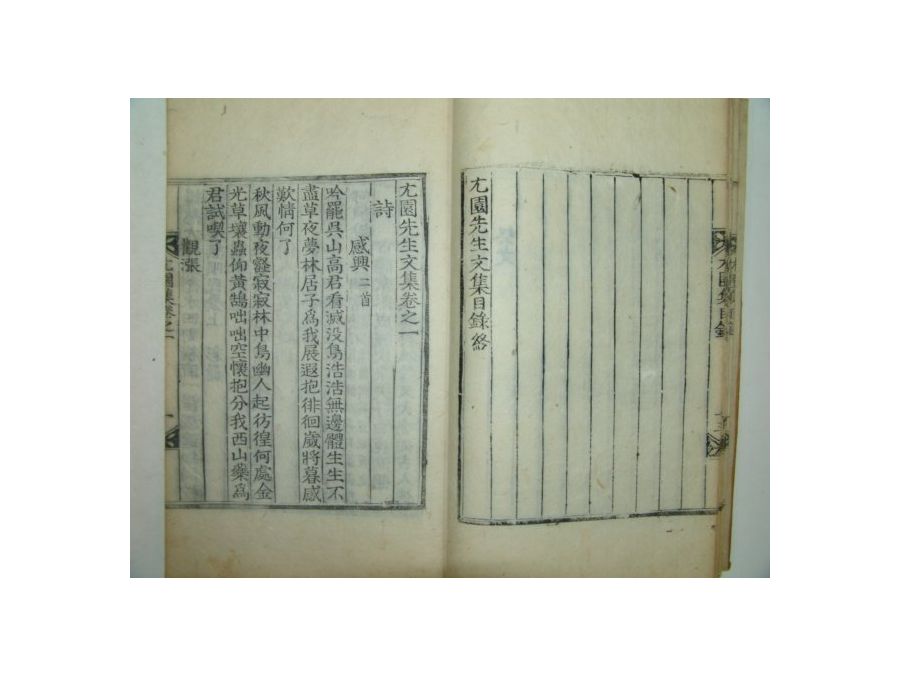 尤園先生文集目錄終
尤園先生文集卷之一
詩
感興二首
吟罷吳山高君看滅没鳥浩浩無邊體生生不
盡草夜夢林居子為我展遐抱徘徊歲將暮感
歎情何了
秋風動夜壑寂寂林中鳥幽人起彷徨何處金
光草壤蟲仰黃鵠咄咄空懷抱分我西山藥為
君試喫了
觀漲
尤園集卷之一